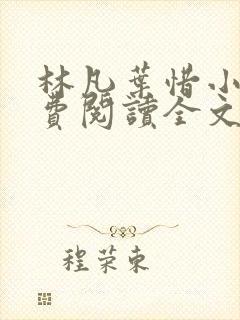 林凡葉惜小
費閱讀全文
程荣東